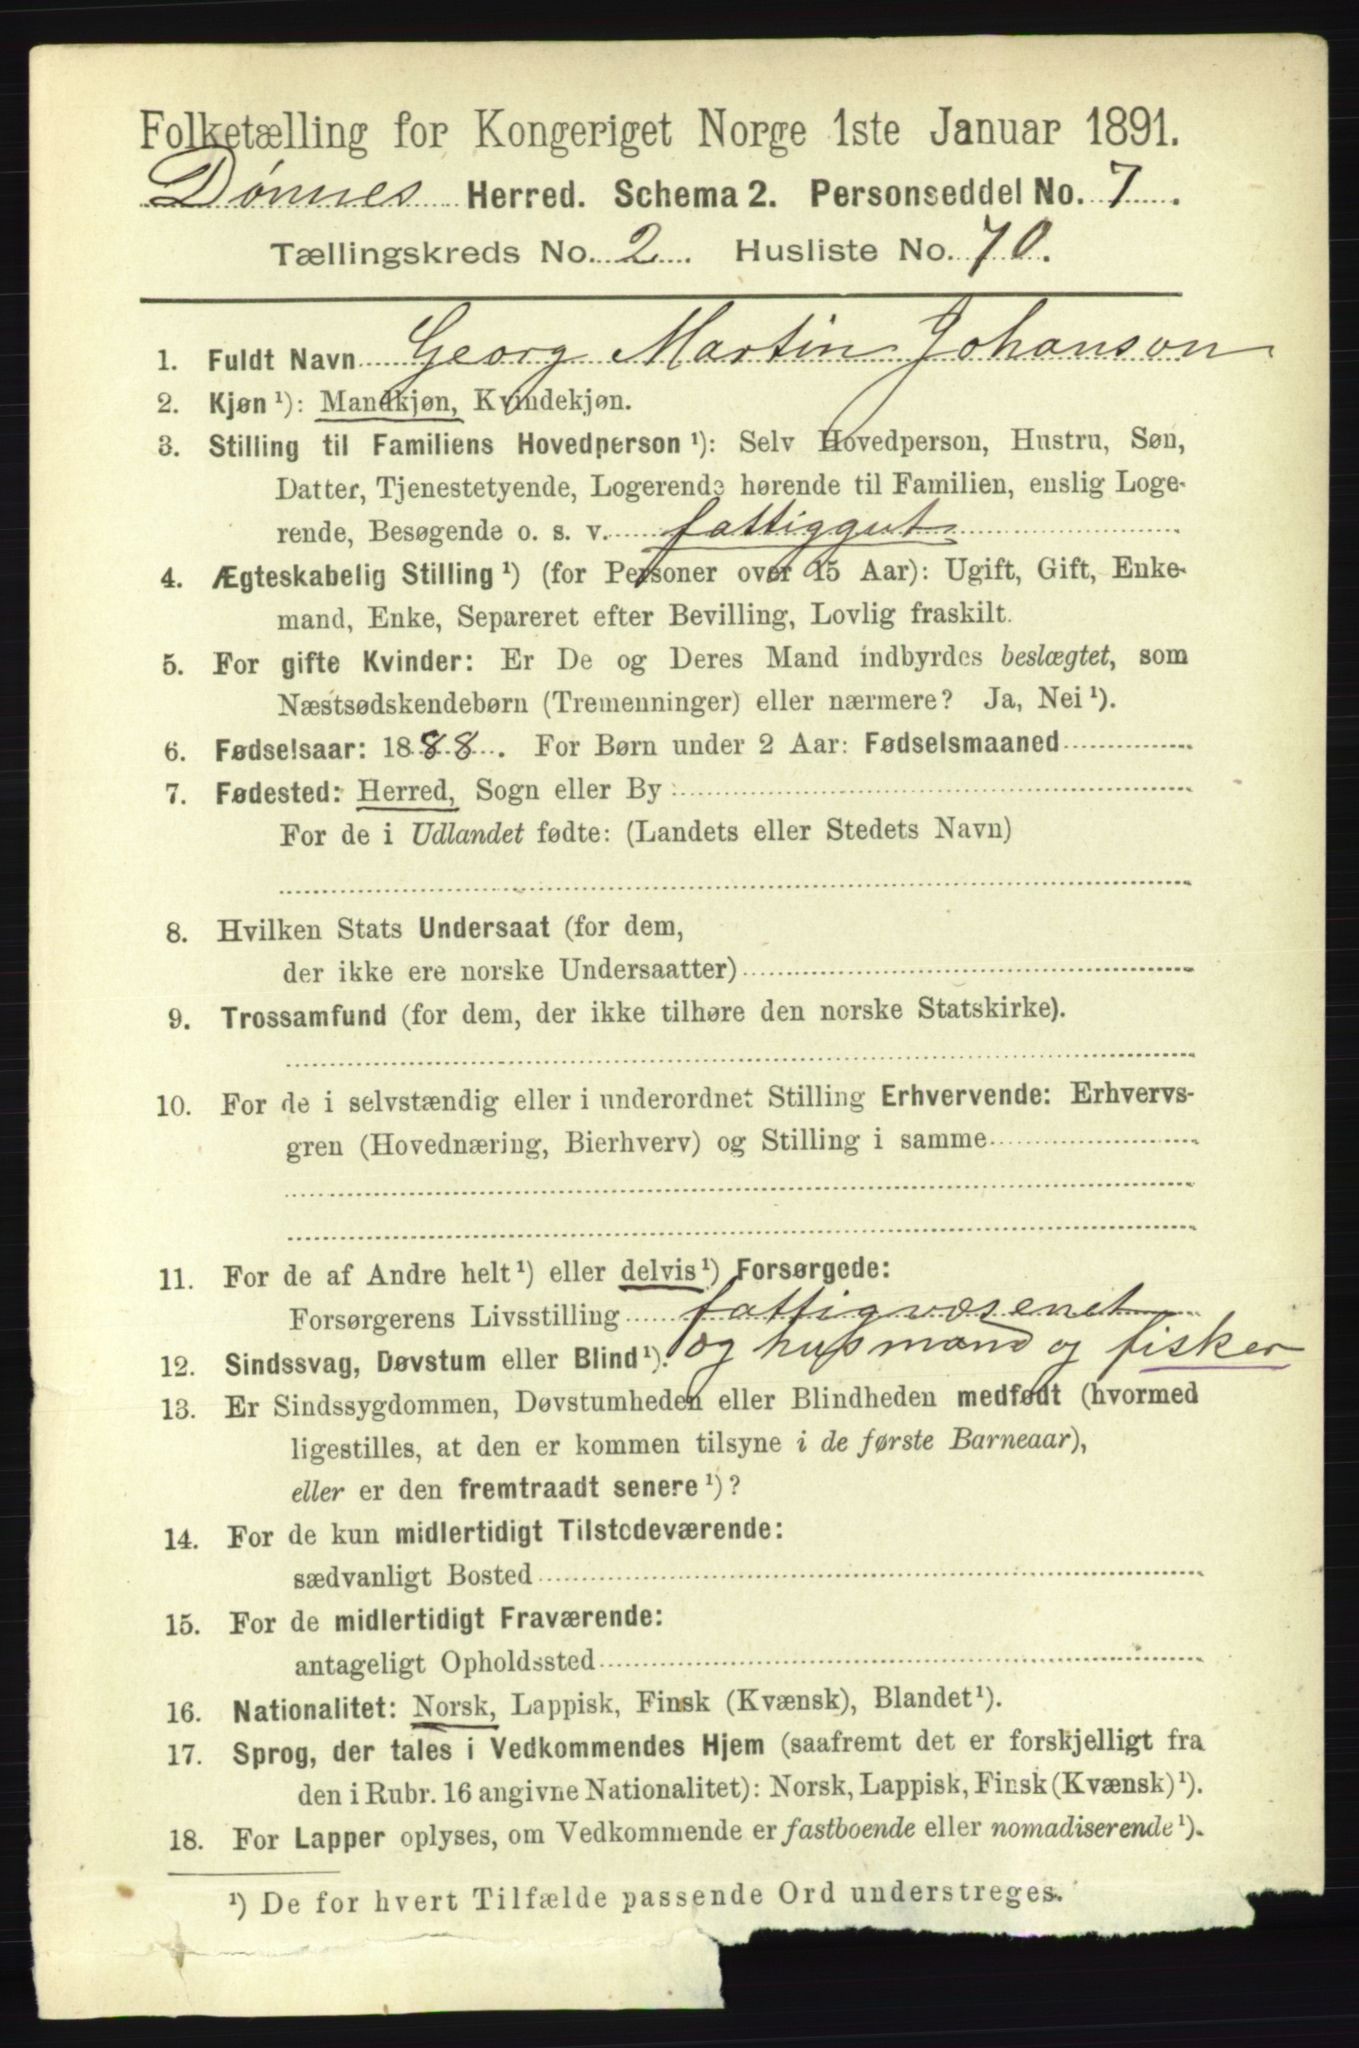 Folketælling for Kongeriget Norge 1ste Januar 1891.
Dønnes Herred. Schema 2. Personseddel No. 7.
Tællingskreds No. 2. Husliste No. 70.
1. Fuldt Navn Georg Martin Johanson
2. Kjøn ¹): Mandkjøn, Kvindekjøn.
3. Stilling til Familiens Hovedperson ¹): Selv Hovedperson, Hustru, Søn,
Datter, Tjenestetyende, Logerende hørende til Familien, enslig Loge-
rende, Besøgende o. s. v. fattiggut
4. Ægteskabelig Stilling ¹) (for Personer over 15 Aar): Ugift, Gift, Enke-
mand, Enke, Separeret efter Bevilling, Lovlig fraskilt.
5. For gifte Kvinder: Er De og Deres Mand indbyrdes beslægtet, som
Næstsødskendebørn (Tremenninger) eller nærmere? Ja, Nei ¹).
6. Fødselsaar: 1888. For Børn under 2 Aar: Fødselsmaaned
7. Fødested: Herred, Sogn eller By
For de i Udlandet fødte: (Landets eller Stedets Navn)
8. Hvilken Stats Undersaat (for dem,
der ikke ere norske Undersaatter)
9. Trossamfund (for dem, der ikke tilhøre den norske Statskirke).
10. For de i selvstændig eller i underordnet Stilling Erhvervende: Erhvervs-
gren (Hovednæring, Bierhverv) og Stilling i samme
11. For de af Andre helt ¹) eller delvis ¹) Forsørgede:
Forsørgerens Livsstilling fattigvæsenet
og husmand og fisker
12. Sindssvag, Døvstum eller Blind ¹).
13. Er Sindssygdommen, Døvstumheden eller Blindheden medfødt (hvormed
ligestilles, at den er kommen tilsyne i de første Barneaar),
eller er den fremtraadt senere ¹)?
14. For de kun midlertidigt Tilstedeværende:
sædvanligt Bosted
15. For de midlertidigt Fraværende:
antageligt Opholdssted
16. Nationalitet: Norsk, Lappisk, Finsk (Kvænsk), Blandet ¹).
17. Sprog, der tales i Vedkommendes Hjem (saafremt det er forskjelligt fra
den i Rubr. 16 angivne Nationalitet): Norsk, Lappisk, Finsk (Kvænsk) ¹).
18. For Lapper oplyses, om Vedkommende er fastboende eller nomadiserende ¹).
¹) De for hvert Tilfælde passende Ord understreges.